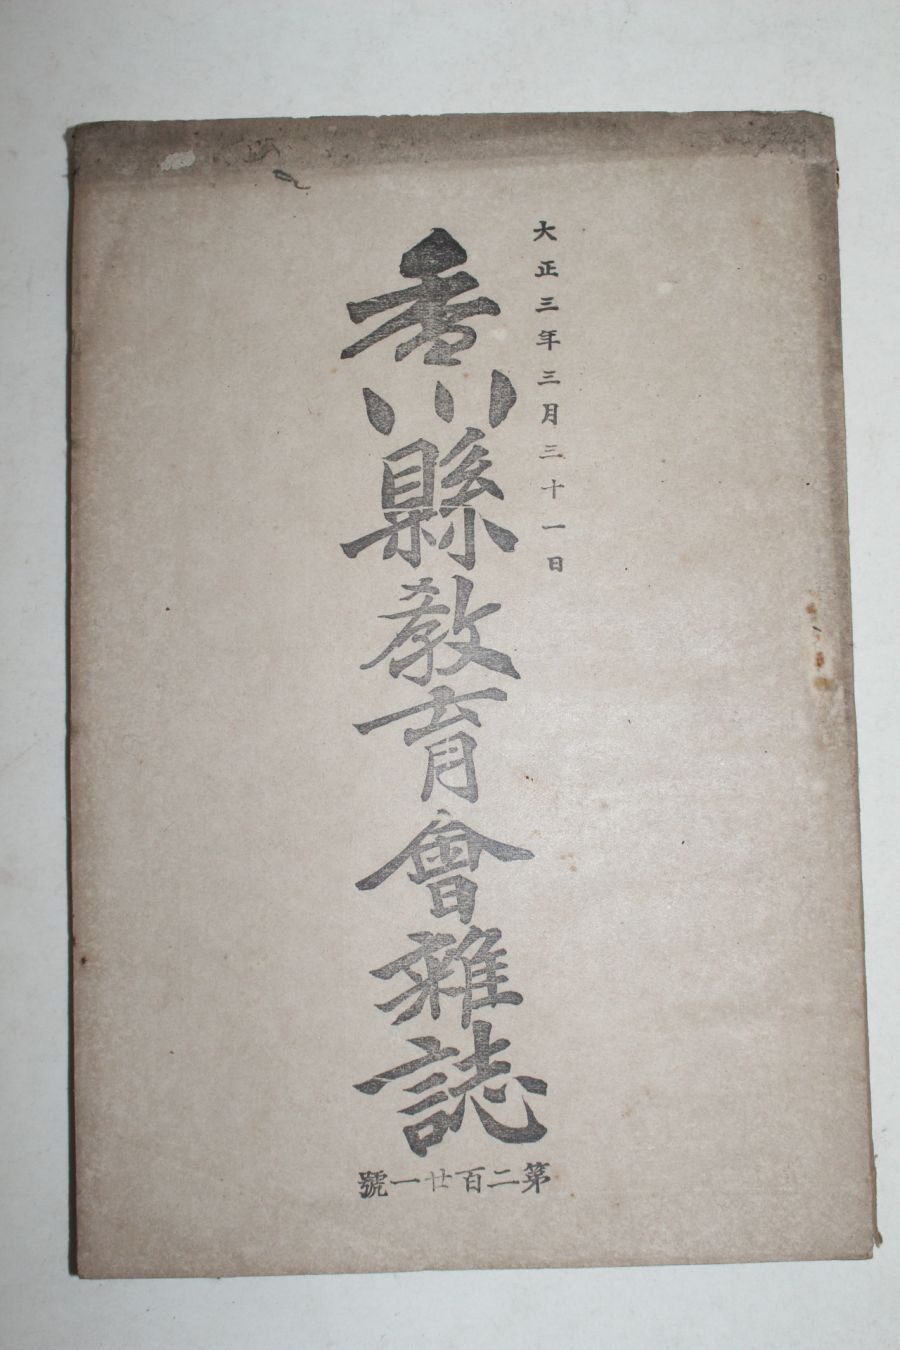 大正三年三月三十一日
香川縣教育會雜誌
第二百廿一號